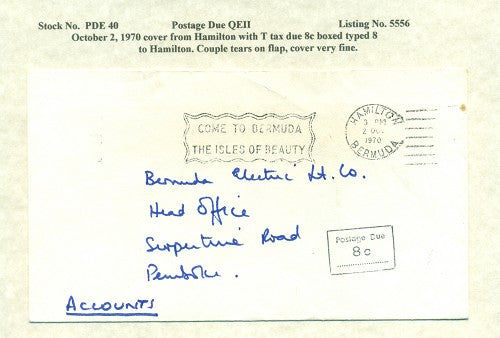 Stock No. PDE 40 Postage Due QEII Listing No. 5556
October 2, 1970 cover from Hamilton with T tax due 8c boxed typed 8
to Hamilton. Couple tears on flap, cover very fine.
COME TO BERMUDA
THE ISLES OF BEAUTY
HAMILTON
3 PM
2 OC
1970
BERMUDA
Bermuda Electric Lt. Co.
Head Office
Serpentine Road
Pembroke.
Postage Due
8c
ACCOUNTS